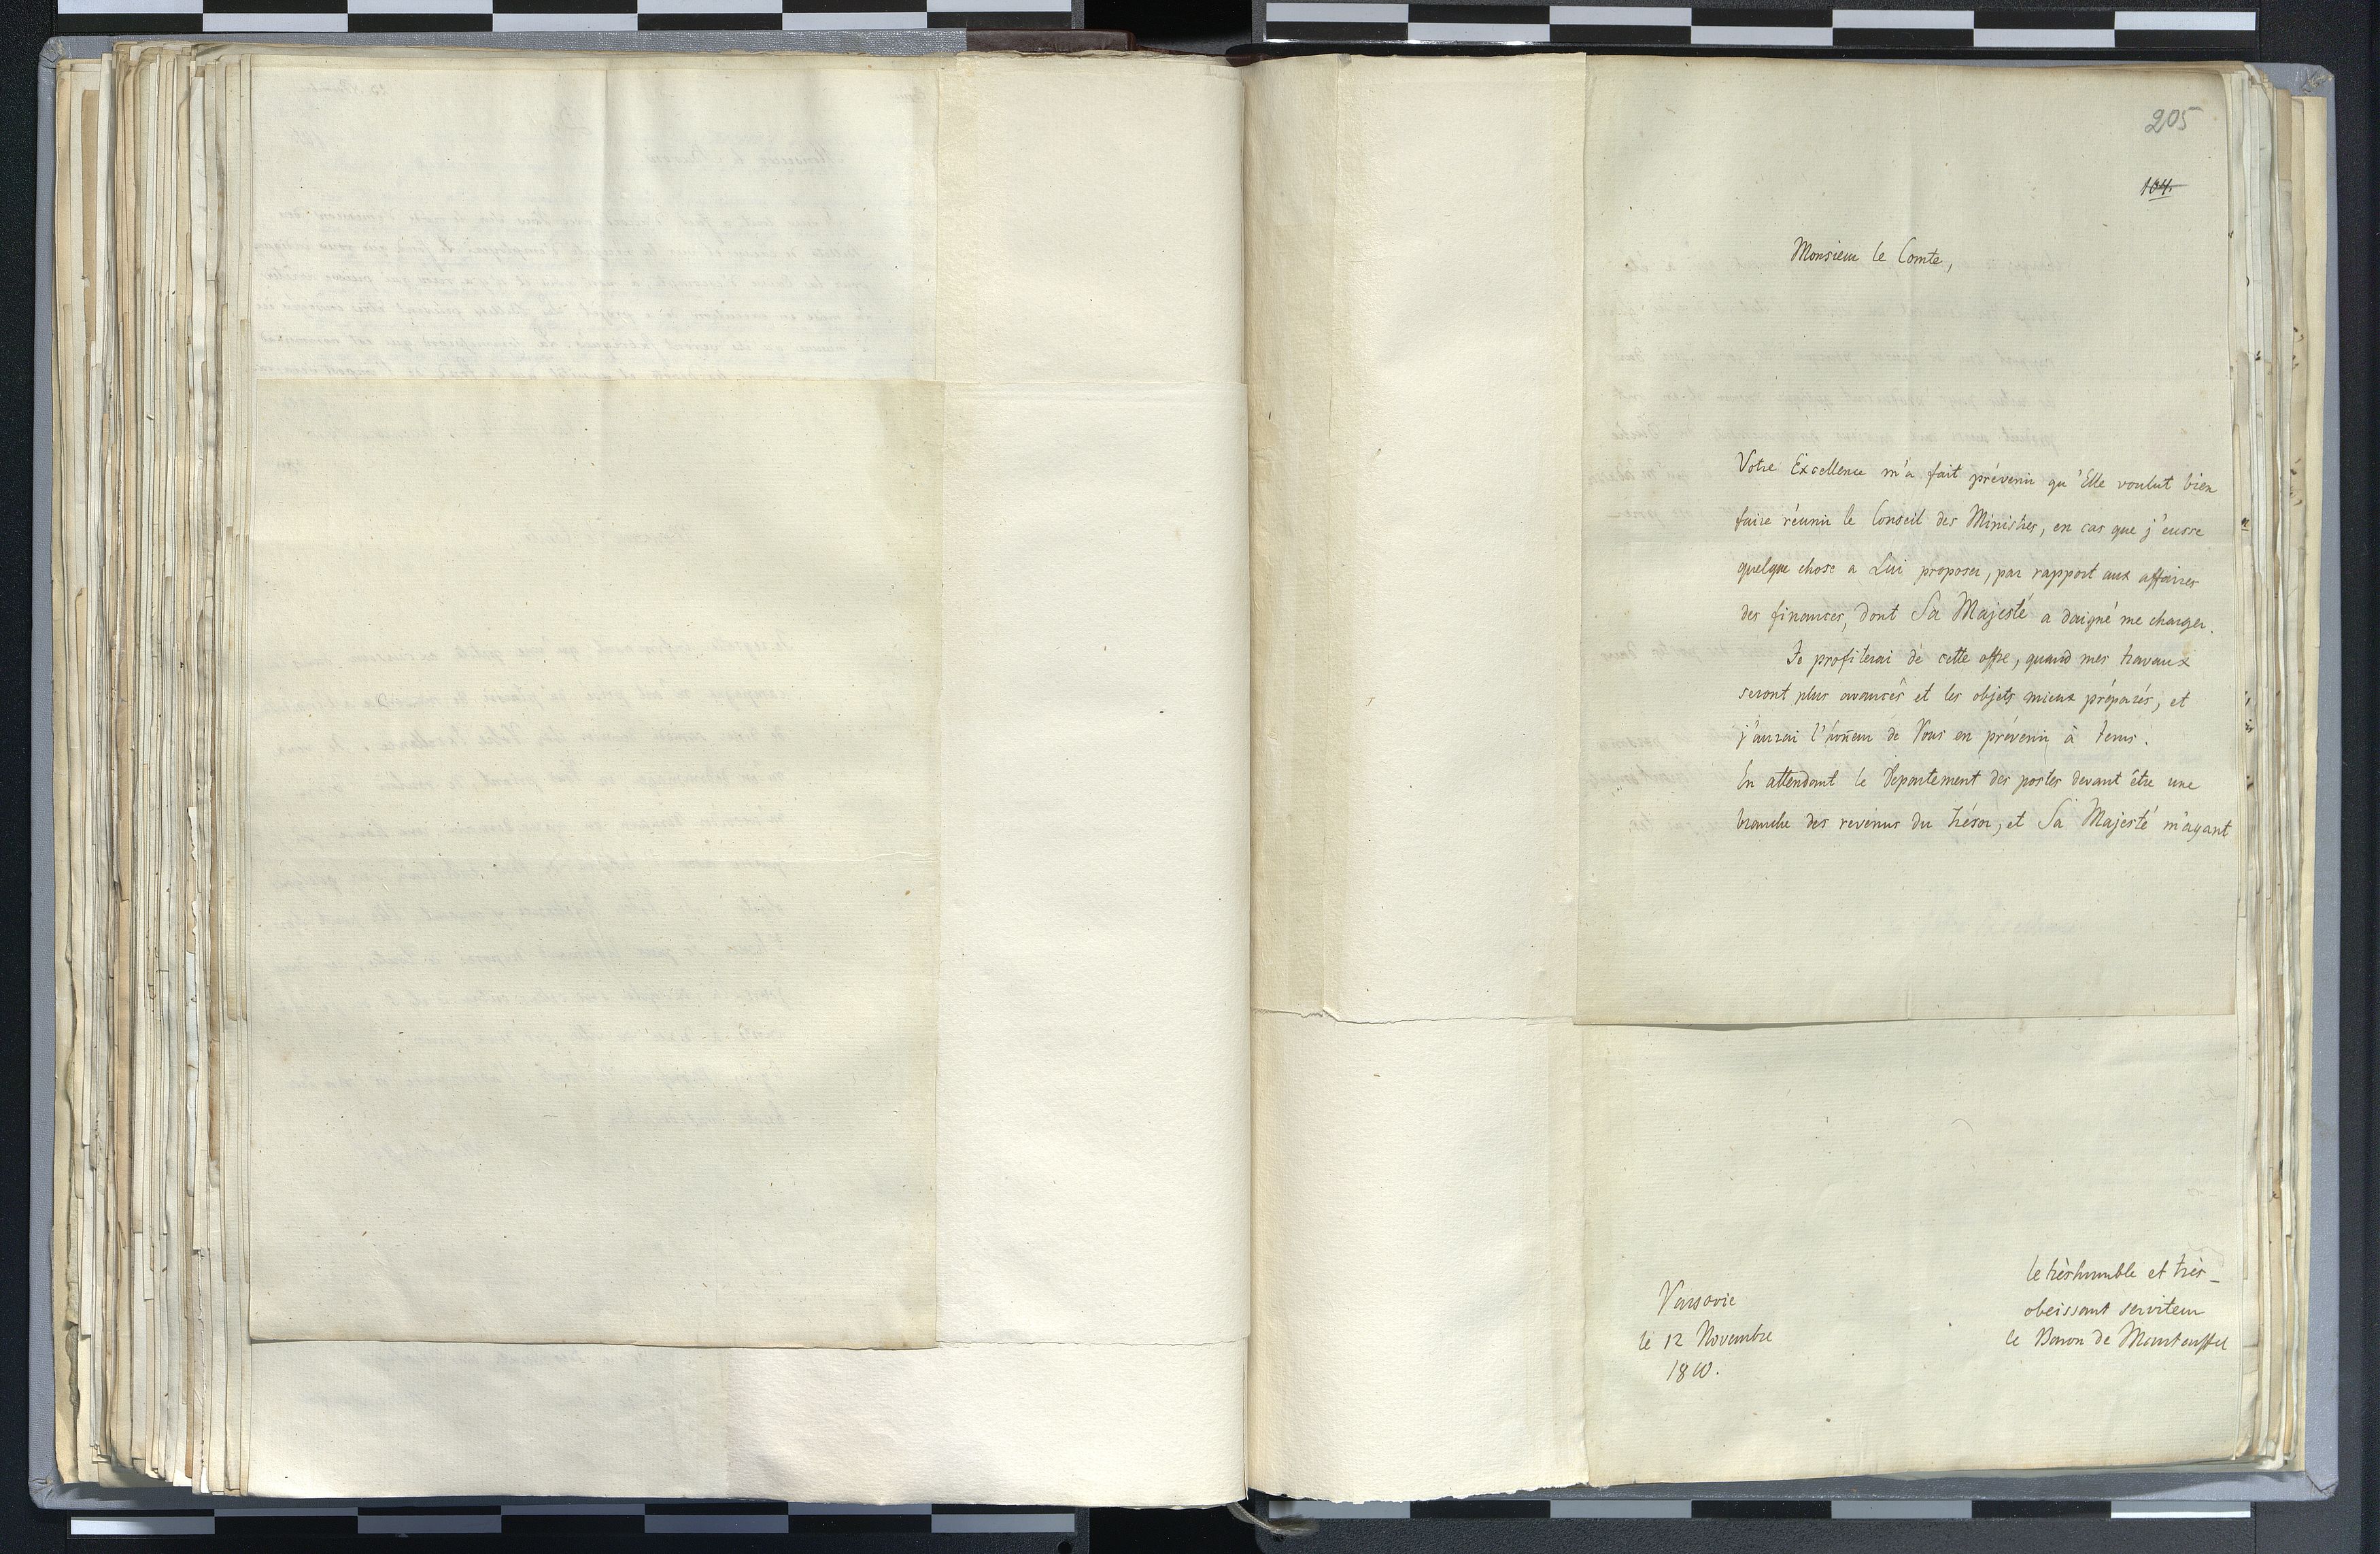 205
104.
Monsieur le Comte,
Votre Excellence m'a fait prévenir qu'Elle voulut bien
faire réunir le Conseil des Ministres, en cas que j'eusse
quelque chose a Lui proposer, par rapport aux affaires
des finances, dont Sa Majesté a daigné me charger.
Je profiterai de cette offre, quand mes travaux
seront plus avancés et les objets mieux préparés, et
j'aurai l'hoñeur de Vous en prévenir à tems.
En attendant le Departement des postes devant être une
branche des revenus du trésor, et Sa Majesté m'ayant
le trèshumble et très-
obeissant serviteur
le Baron de Manteuffel
Varsovie
le 12 Novembre
1810.